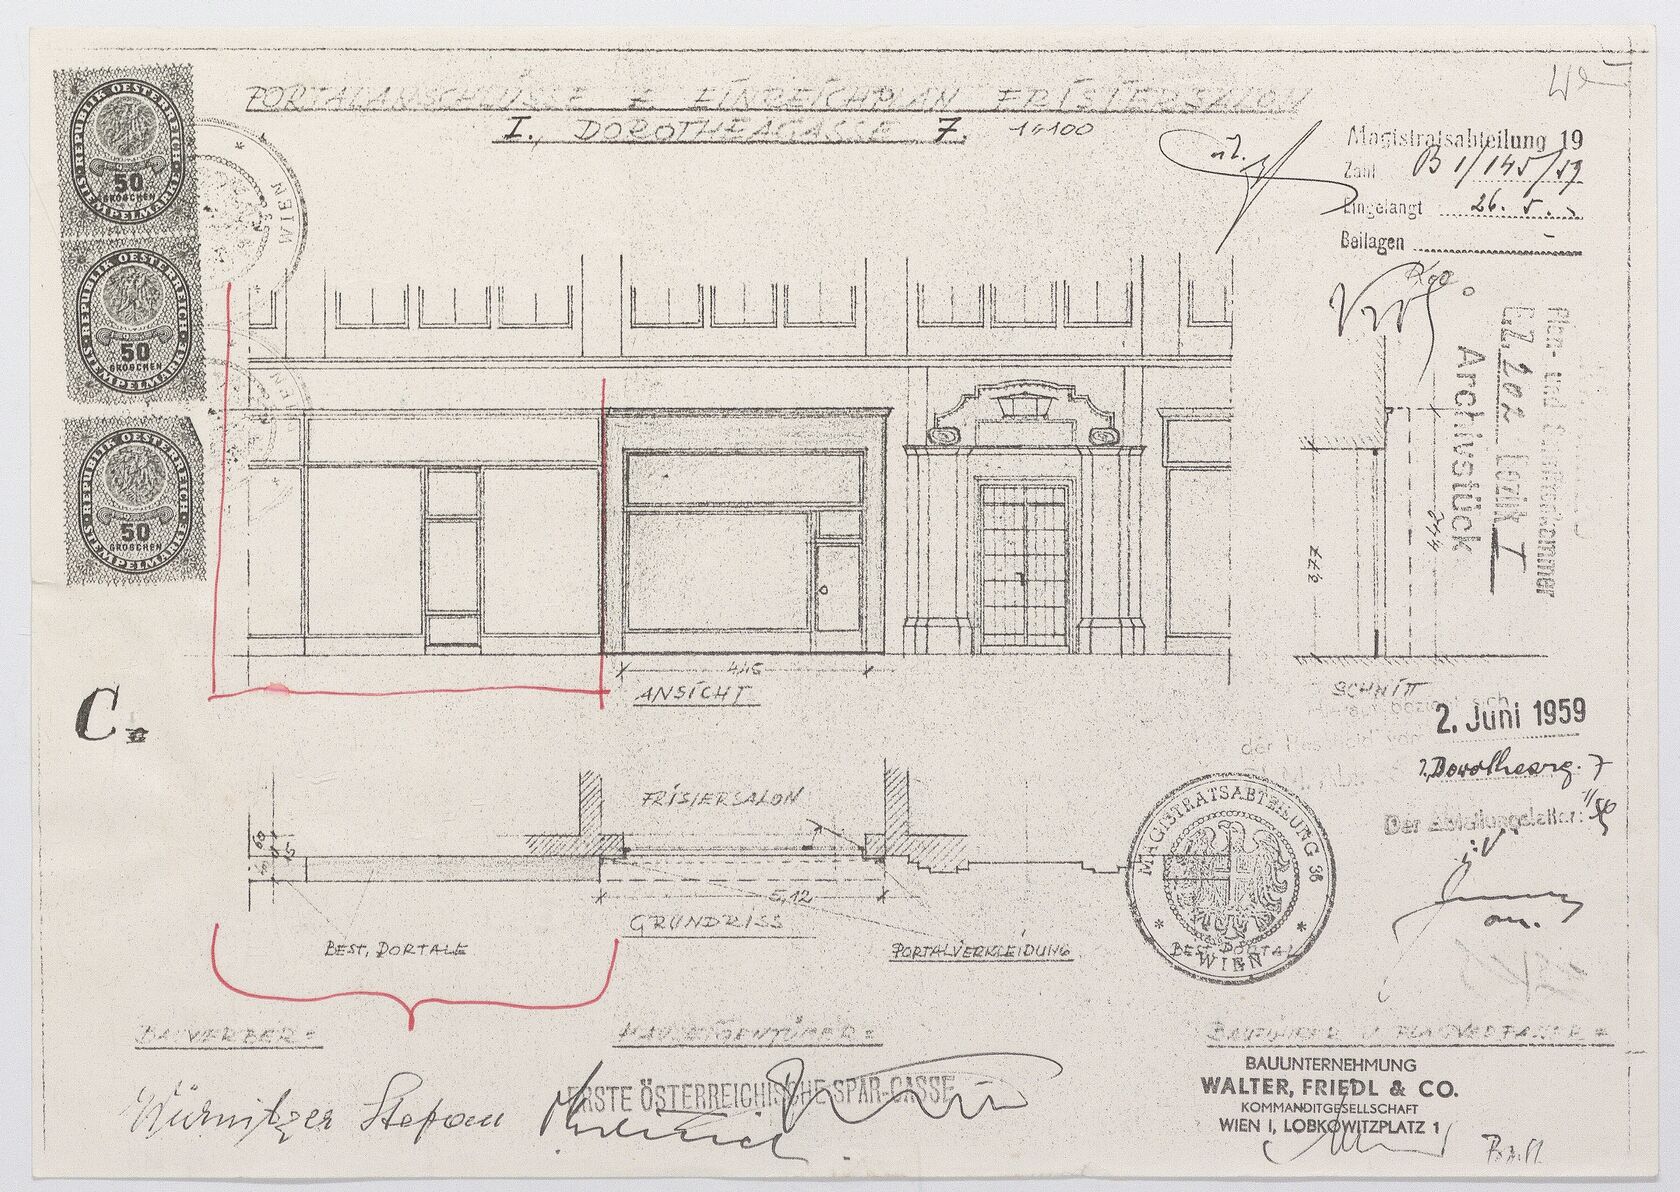 PORTALANSCHLÜSSE Z. EINREICHPLAN FRISIERSALON
I., DOROTHEAGASSE 7. 1:100
REPUBLIK OESTERREICH
50
GROSCHEN
STEMPELMARKE
REPUBLIK OESTERREICH
50
GROSCHEN
STEMPELMARKE
REPUBLIK OESTERREICH
50
GROSCHEN
STEMPELMARKE
WIEN
WIEN
Magistratsabteilung 19
Zahl B 1/145/59
Eingelangt 26. 5.
Beilagen
Plan- und Schriftenkammer
E.Z. 202 Bezirk I
Archivstück
4,42
446
ANSICHT
SCHNITT
C.
Hierauf bezieht sich
der Bescheid vom 2. Juni 1959
I. Dorotheerg. 7
Der Abteilungsleiter:
i.V
MAGISTRATSABTEILUNG 36
WIEN
FRISIERSALON
60
15
5,12
GRUNDRISS
BEST. PORTALE
PORTALVERKLEIDUNG
BEST. PORTAL
BAUWERBER:
HAUSEIGENTÜMER:
BAUFÜHRER U. PLANVERFASSER:
Würnitzer Stefan
ERSTE ÖSTERREICHISCHE SPAR-CASSE
BAUUNTERNEHMUNG
WALTER, FRIEDL & CO.
KOMMANDITGESELLSCHAFT
WIEN I, LOBKOWITZPLATZ 1